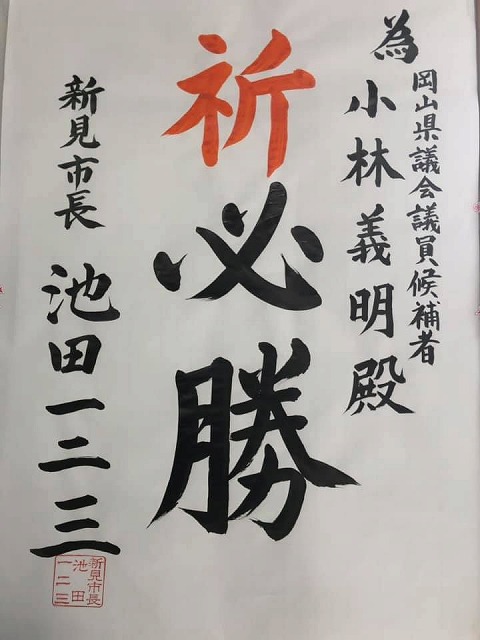 為
岡山県議会議員候補者
小林義明殿
祈必勝
新見市長
池田一二三
新見市長
池田
一二三